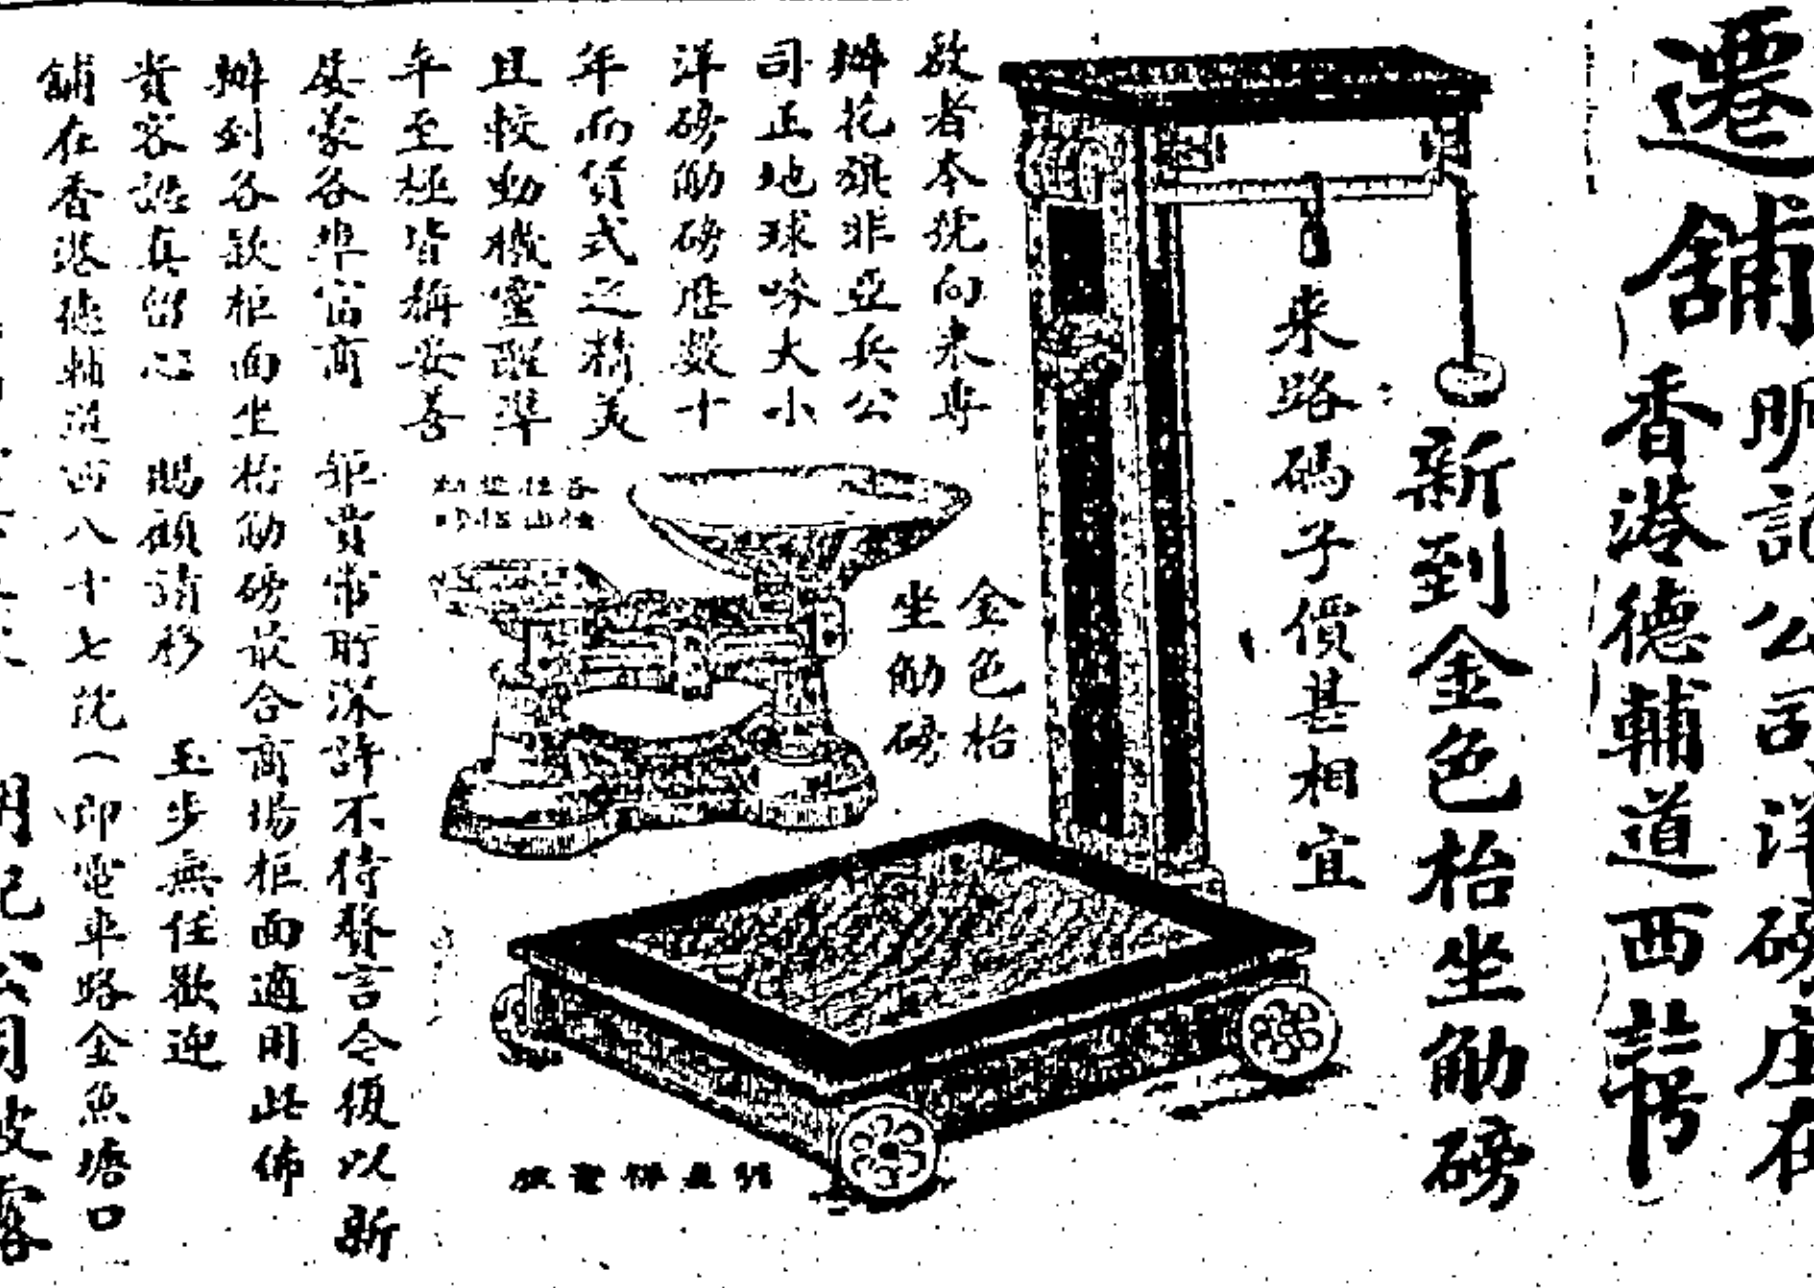 遷舖
明記公司洋磅庄在
香港德輔道西
新到金色枱坐觔磅
来路碼子價甚相宜
啟者本號向来專
辦花旗非亞兵公
司正地球嘜大小
洋磅觔磅歷数十
年而貨式之精美
且較動機靈醒準
年至極皆稱妥善
屡蒙各埠富商
鉅賞常貯深許不待贅言今復以新
辦到各欵柜面坐枱觔磅最合商場柜面適用此佈
貴客認真留心 賜顧請移 玉步無任歡迎
舖在香港德輔道西八十七號(即電車路金魚塘口
金色枱
坐觔磅
明記公司披露